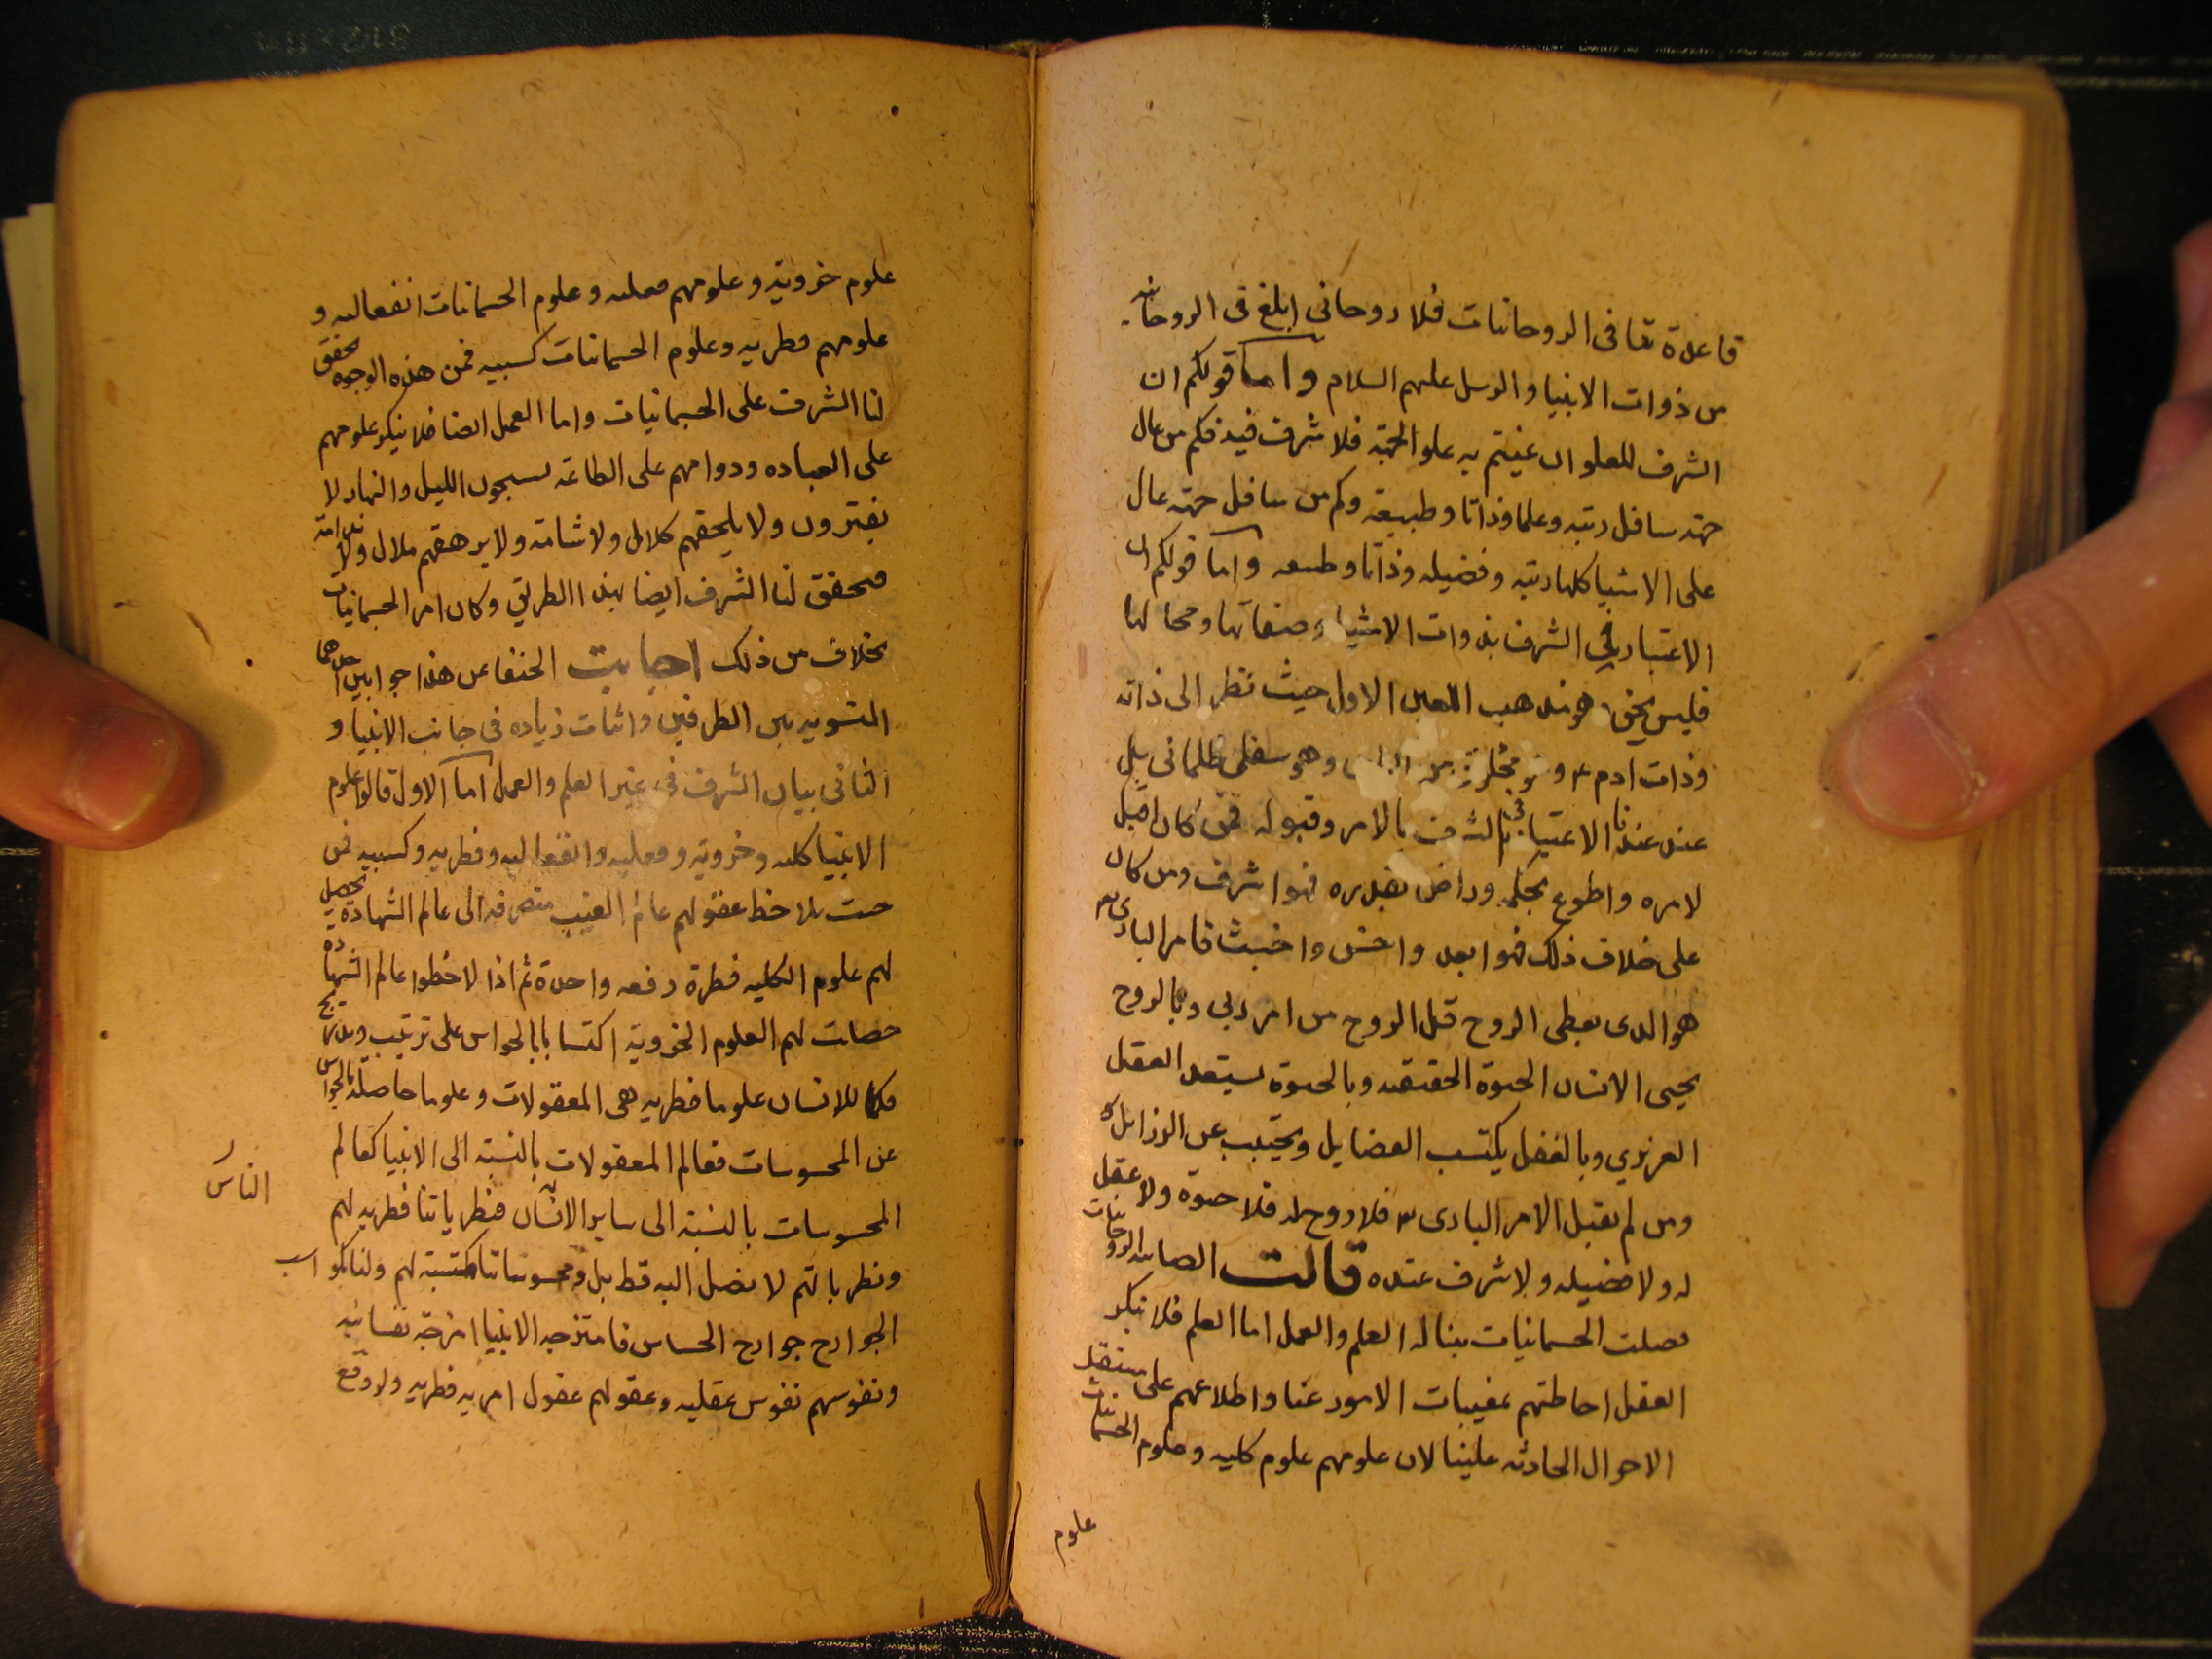 قاعدة تعا فى الروحانيات فلا روحانى ابلغ فى الروحانيه
من ذوات الانبيا والرسل عليهم السلام واما قولكم ان
الشرف للعلو ان عنيتم به علو الجهة فلا شرف فيه فكم من عال
جهة سافل رتبه وعلما وذاتا وطبيعة وكم من سافل جهه عال
على الاشيا كلها رتبه وفضيله وذاتا وطبيعه واما قولكم ان
الاعتبار فى الشرف بذوات الاشياء وصفاتها ومحالها
فليس بحق وهو مذهب اللعين الاول حيث نظر الى ذاته
وذات ادم وهو سفلى ظلمانى بل
عند عندنا الاعتبار فى الشرف بالامر وقبوله فمن كان اقبل
لامره واطوع بحكمه وراض بقدره فهو اشرف ومن كان
على خلاف ذلك فهو ابعد واخس واخبث فامر البارى
هو الذى يعطى الروح قل الروح من امر ربى وبالروح
يحيى الانسان الحيوة الحقيقيه وبالحيوة يستعد العقل
الغريزي وبالعقل يكتسب الفضايل ويجتنب عن الرذايل
ومن لم يقبل الامر البارى فلا روح له فلا حيوة ولا عقل
له ولا فضيله ولا شرف عنده قالت الصابيه الروحانيات
فضلت الجسمانيات بنا له العلم والعمل اما العلم فلا ينكر
العقل احاطتهم بمغيبات الامور عنا واطلاعهم على مستقبل
الاحوال الحادثه علينا لان علومهم علوم كليه وعلوم الجسمانيات
علوم
علوم جزوية وعلومهم فعليه وعلوم الجسمانيات انفعاليه و
علومهم فطريه وعلوم الجسمانيات كسبيه فمن هذه الوجوه تحقق
لنا الشرف على الجسمانيات واما العمل ايضا فلا ينكر علومهم
على العباده ودوامهم على الطاعه يسبحون الليل والنهار لا
يفترون ولا يلحقهم كلال ولا شامة ولا يرهقهم ملال ولا ندامة
فتحقق لنا الشرف ايضا بهذا الطريق وكان امر الجسمانيات
بخلاف من ذلك اجابت الحنفا عن هذا جوابين احدهما
التسويه بين الطرفين واثبات زياده فى جانب الانبيا و
الثانى بيان الشرف فى غير العلم والعمل اما الاول قالوا علوم
الانبيا كليه وجزوية وفعليه وانفعاليه وفطريه وكسبيه فمن
حيث يلاحظ عقولهم عالم الغيب منصرفه الى عالم الشهادة يحصل
لهم علوم الكليه فطرة دفعه واحدة ثم اذا لاحظوا عالم الشهادة
حصلت لهم العلوم الجزوية اكتسابا بالحواس على ترتيب وتدريج
فكما للانسان علوما فطريه هى المعقولات وعلوما حاصلة بالحواس
عن المحسوسات فعالم المعقولات بالنسبة الى الانبيا كعالم
المحسوسات بالنسبة الى ساير الانسان فنظرياتنا فطريه لهم
الناس
ونظرياتهم لا نصل اليه قط بل ومحسوساتنا مكتسبة لهم ولنا بكواسب
الجوارح جوارح الحساس فامتزجه الانبيا امزجة نفسانيه
ونفوسهم نفوس عقليه وعقولهم عقول امريه فطريه ولو وقع